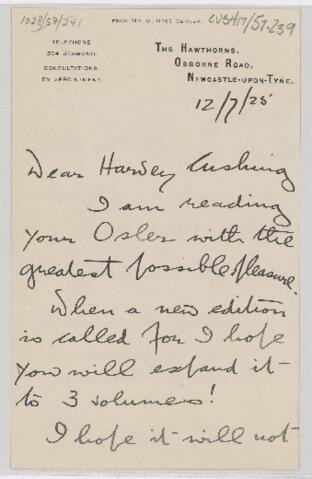 1028/57/241
CUS417/57-239
FROM
TELEPHONE
334 JESMOND.
CONSULTATIONS
BY APPOINTMENT.
THE HAWTHORNS,
OSBORNE ROAD,
NEWCASTLE-UPON-TYNE.
12/7/25
Dear Harvey Cushing
I am reading
your Osler with the
greatest possible pleasure.
When a new edition
is called for I hope
you will expand it
to 3 volumes!
I hope it will not